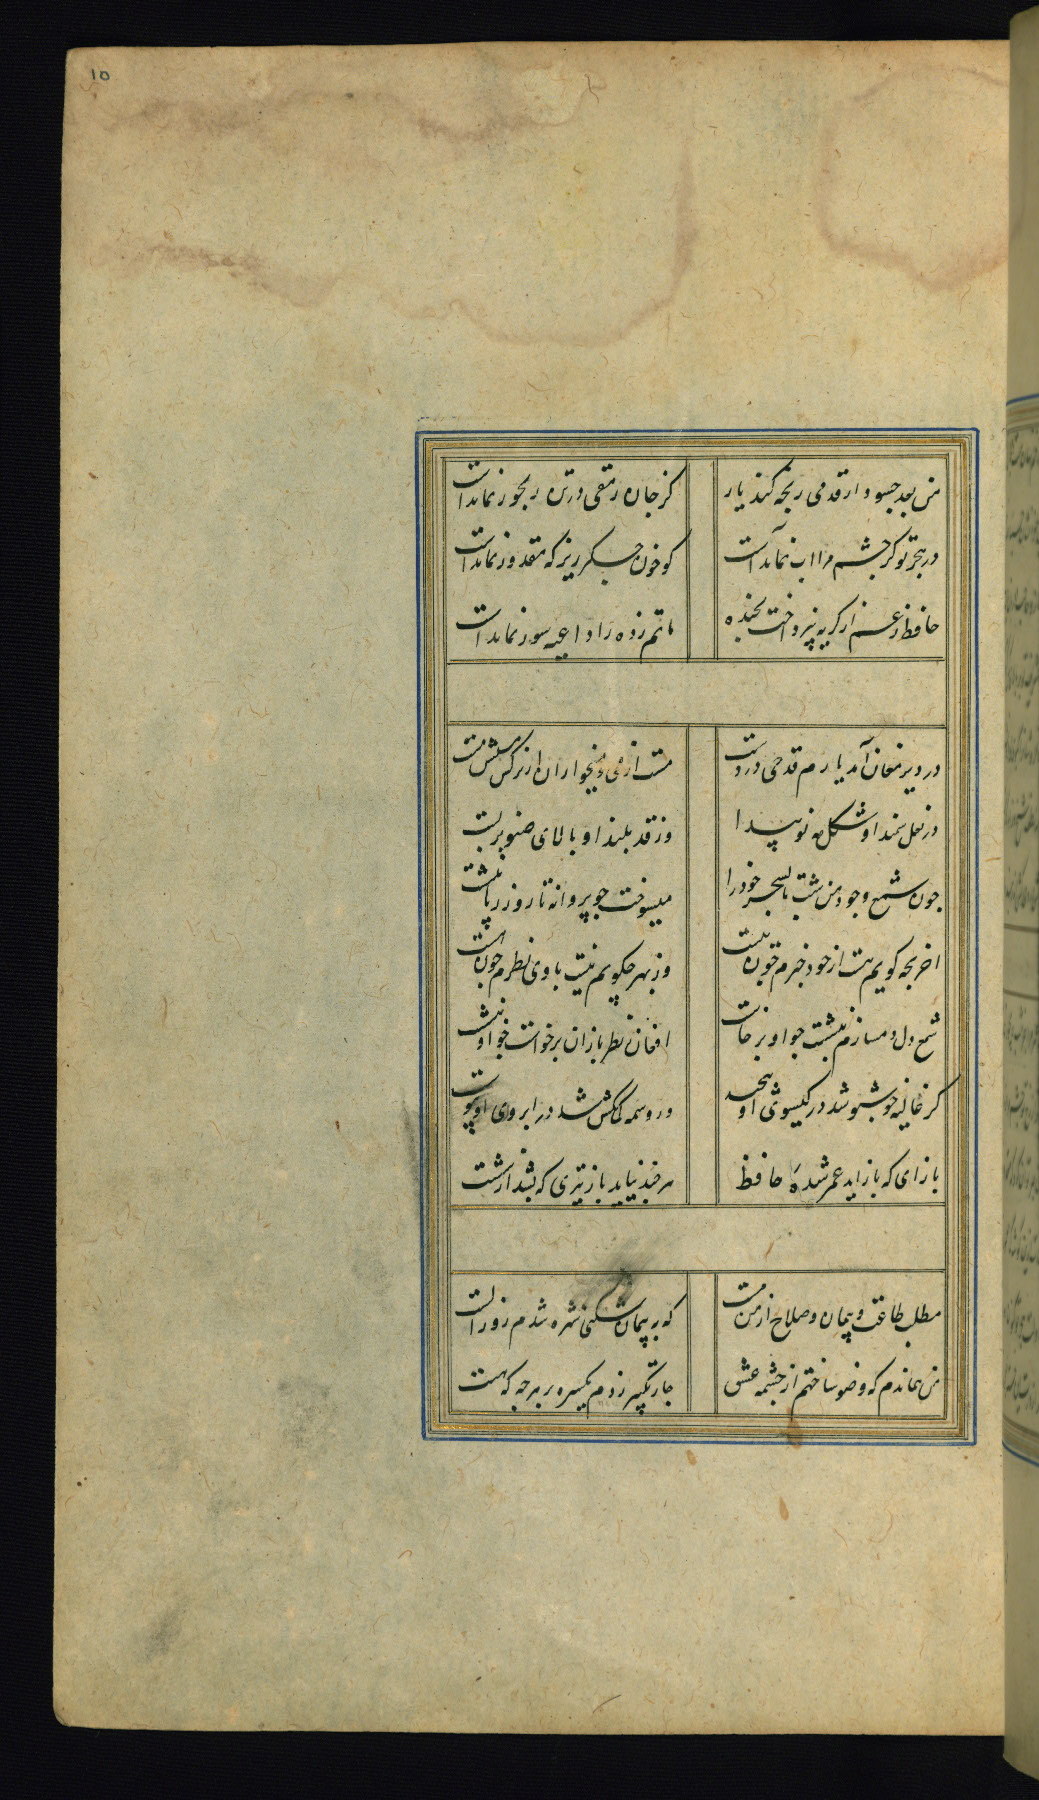 10
من بعد چه سود ار قدمی رنجه کند یار
کز جان رمقی در تن رنجور نماندست
در هجر تو گر چشم مرا اب نماندست
کو خون جگر ریز که معذور نماندست
حافظ ز غم از گریه نپرداخت بخنده
ماتم زده را داعیه سور نماندست
در دیر مغان آمد یارم قدحی در دست
مست از می و میخواران از نرگس مستش مست
در نعل سمند او شکل مه نو پیدا
وز قد بلند او بالای صنوبر پست
چون شمع وجود من شب تا بسحر خود را
میسوخت چو پروانه تا روز ز پا ننشست
اخر بچه گویم هست از خود خبرم چون نیست
وز بهر چه گویم نیست با وی نظرم چون هست
شمع دل دمسازم بنشست چو او برخاست
افغان نظربازان برخواست چو او بنشست
گر غالیه خوشبو شد در گیسوی او پیچید
ور وسمه کمانکش شد در ابروی او پیوست
باز ای که باز اید عمر شده حافظ
هر چند نیاید باز تیری که بشد از شست
مطلب طاعت و پیمان و صلاح از من مست
که به پیمانه کشی شهره شدم روز الست
من هماندم که وضو ساختم از چشمه عشق
چار تکبیر زدم یکسره بر هر چه که هست